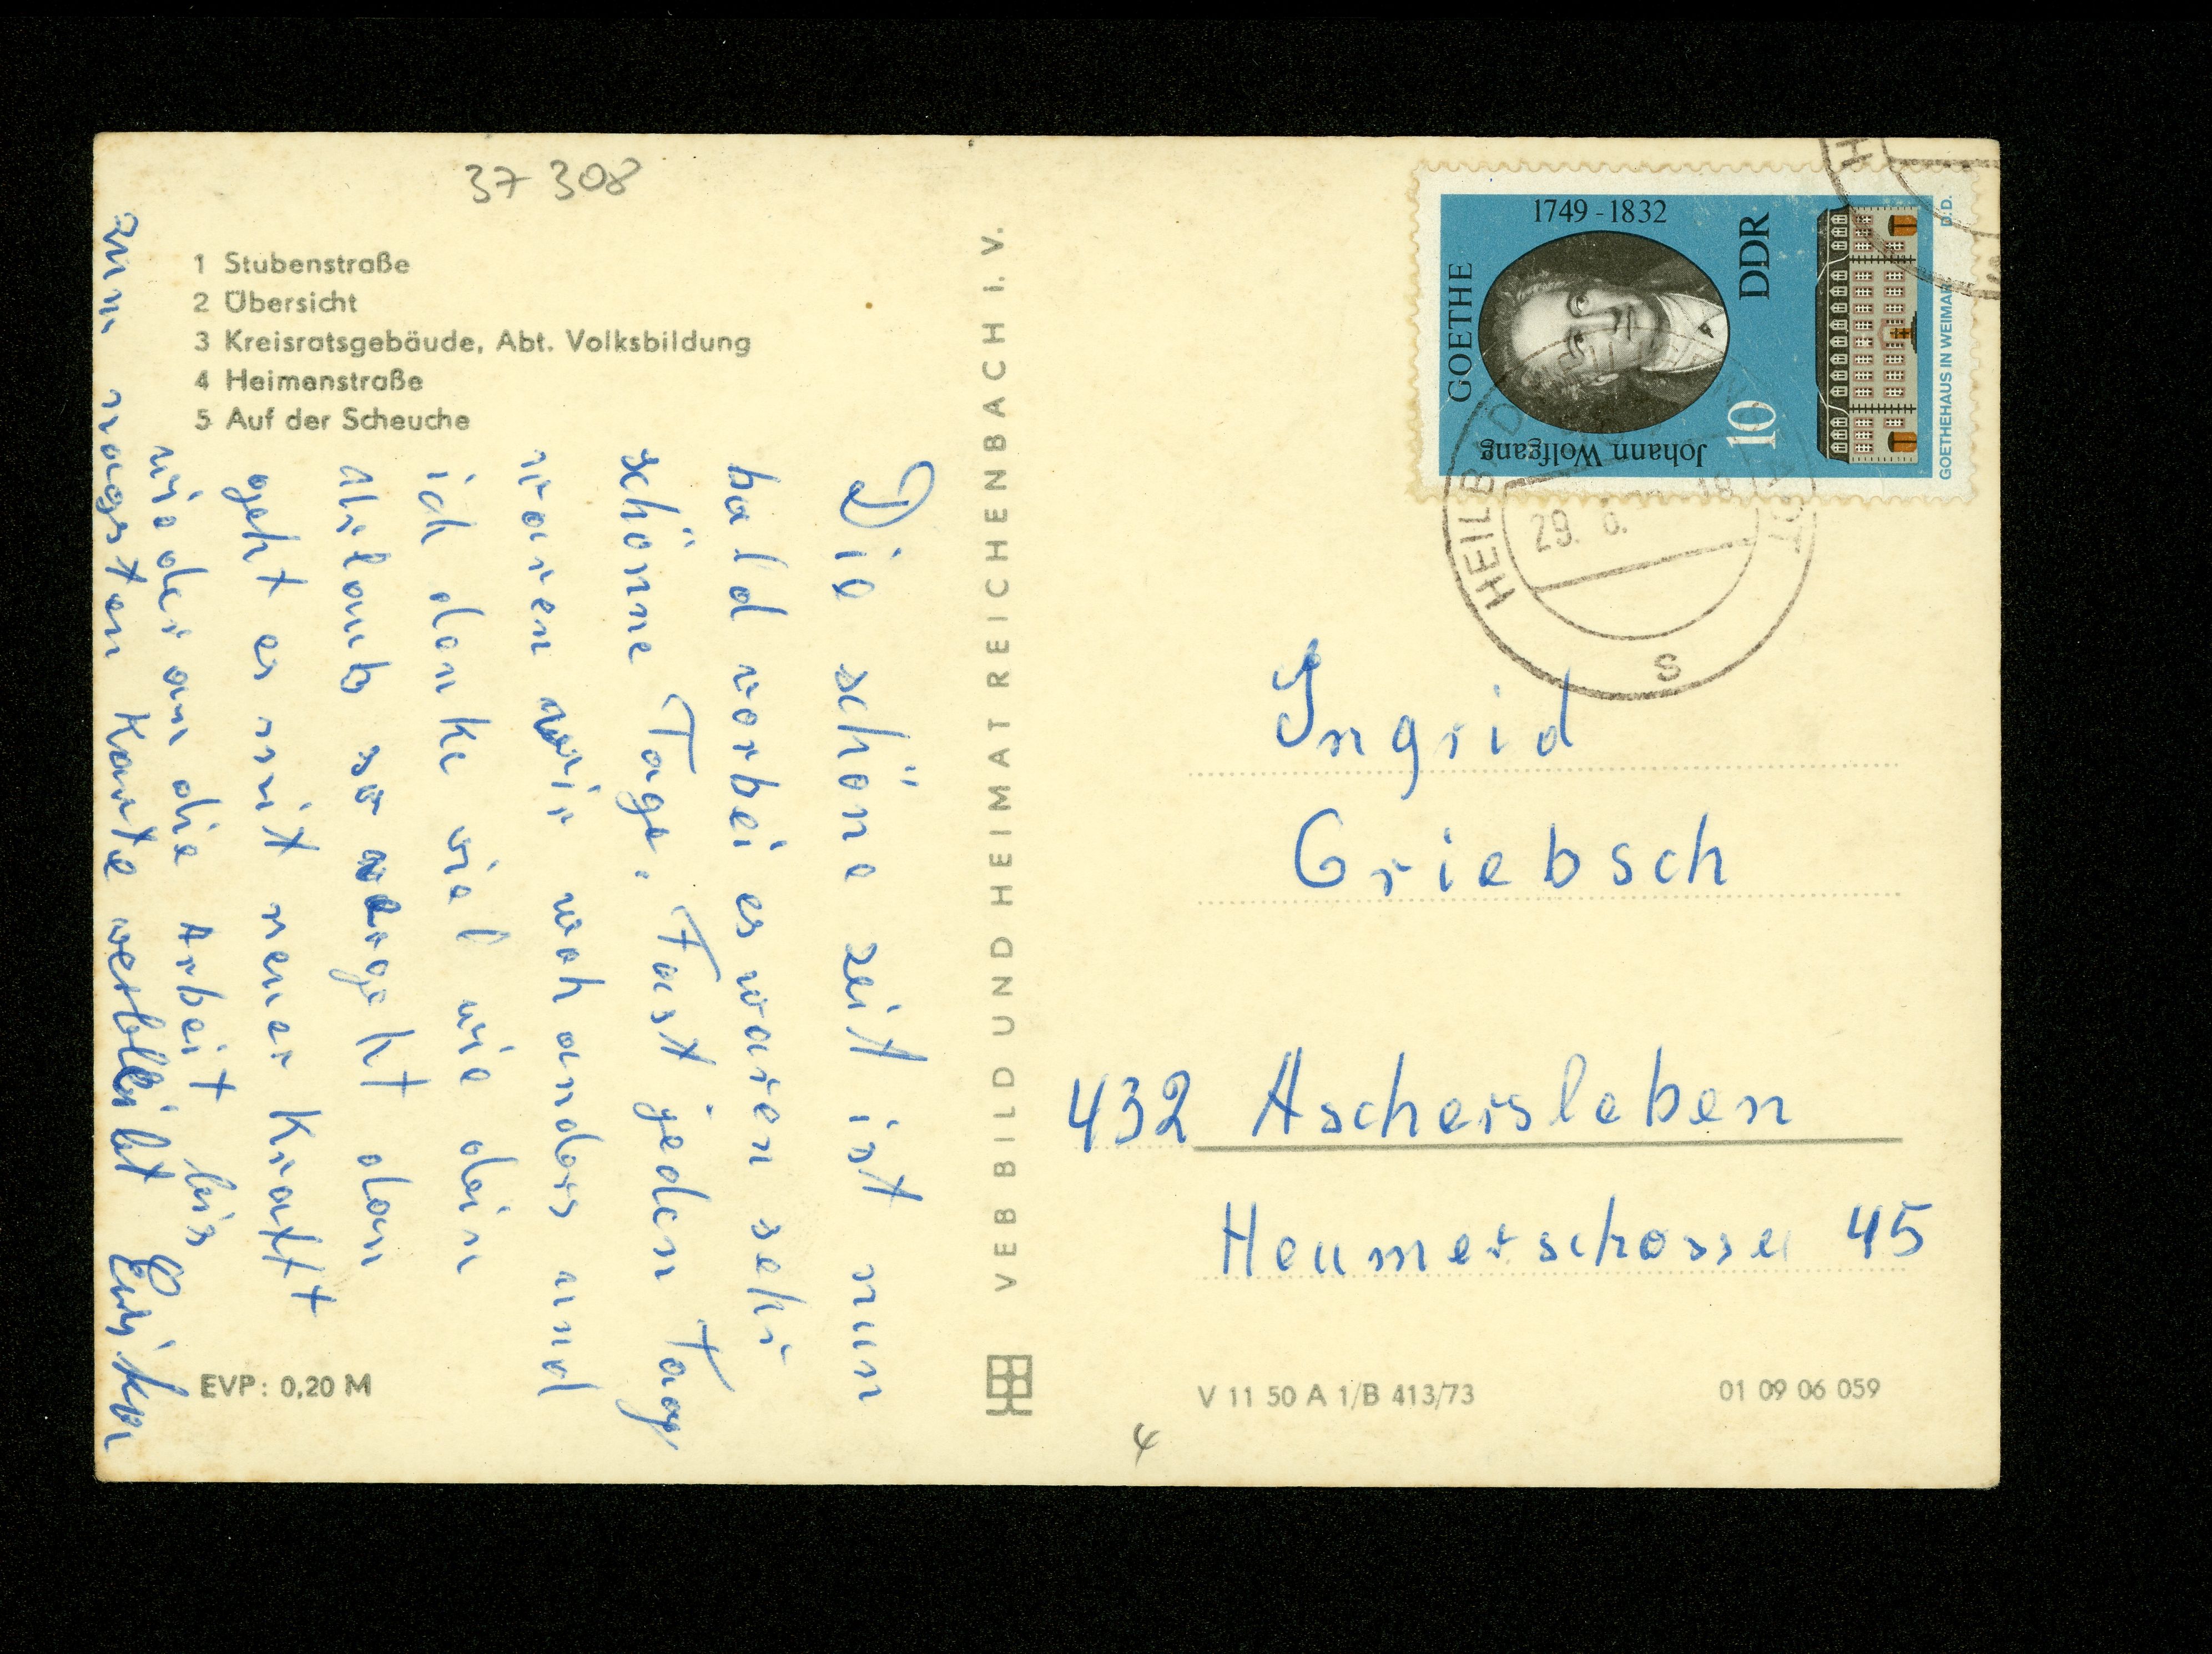 37 308
1 Stubenstraße
2 Übersicht
3 Kreisratsgebäude, Abt. Volksbildung
4 Heimenstraße
5 Auf der Scheuche
Die schöne zeit ist nun
bald vorbei es waren sehr
schönne Tage. Fast jeden Tag
waren wir woh anders und
ich denke viel wie dein
Uhrlaub so
geht es mit neuer Kraft
wieder an die Arbeit bis
zum nägsten Karte verbleibt
EVP: 0,20 M
VEB BILD UND HEIMAT REICHENBACH I. V.
GOETHE
1749 - 1832
Johann Wolfgang
DDR
10
GOETHEHAUS IN WEIMAR
D.D.
HEILBAD
29. 6.
s
Ingrid
Griebsch
432 Aschersleben
Heumerschosse 45
V 11 50 A 1/B 413/73
01 09 06 059
4